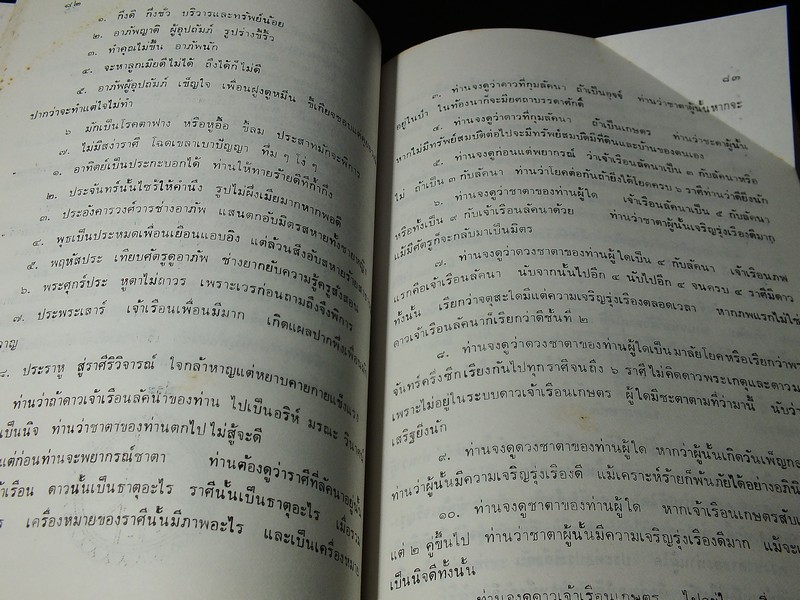 ๘๒
๑. กึ่งดี กึ่งชั่ว บริวารและทรัพย์น้อย
๒. อาภัพญาติ ผู้อุปถัมภ์ รูปร่างขี้ริ้ว
๓. ทำคุณไม่ขึ้น อาภัพนัก
๔. จะหาลูกเมียดีไม่ได้ ถึงได้ก็ไม่ดี
๕. อาภัพผู้อุปถัมภ์ เข็ญใจ เพื่อนฝูงดูหมิ่น ขี้เกียจชอบ
ปากว่าจะทำแต่ใจไม่ทำ
๖ มักเป็นโรคตาฟาง หรือหูอื้อ ขี้ลม ประสาทมักจะพิการ
๗. ไม่มีสง่าราศี โฉดเขลาเบาปัญญา ทึ่ม ๆ โง่ ๆ
๑. อาทิตย์เป็นประกะบอกได้ ท่านให้ทายร้ายดีที่ก้ำกึ่ง
๒. ประจันทร์นั้นไซร้ให้คำนึง รูปไม่ถึงเมียมากหากพอดี
๓. ประอังคารวงศ์วารช่างอาภัพ แสนตกอับมิตรสหายทั้งชายหญิง
๔. พุธเป็นประหมดเพื่อนเยือนแอบอิง แต่ล้วนสิ่งอับสหาย
๕. พฤหัสประ เทียบศัตรูดูอาภัพ ช่างยากยับความรู้ครูสั่งสอน
๖. พระศุกร์ประ หูตาไม่ถาวร เพราะเวรก่อนถามถึงจึงพิการ
๗. ประพระเสาร์ เจ้าเรือนเพื่อนมีมาก เกิดแผลปากพึ่งเพื่อน
๘. ประราหู สู่ราศีริวิจารณ์ ใจกล้าหาญแต่หยาบคายกายแข็งแรง
ท่านว่าถ้าดาวเจ้าเรือนลัคน์นาของท่าน ไปเป็นอริห์ มรณะ วินาศน์
เป็นนิจ ท่านว่าชาตาของท่านตกไป ไม่สู้จะดี
แต่ก่อนท่านจะพยากรณ์ชาตา ท่านต้องดูว่าราศีที่ลัคนาอยู่นั้น
เจ้าเรือน ดาวนั้นเป็นธาตุอะไร ราศีนั้นเป็นธาตุอะไร เมื่อ
เครื่องหมายของราศีนั้นมีภาพอะไร และเป็นเครื่องหมาย
๘๓
๓. ท่านจงดูว่าดาวที่กุมลัคนา ถ้าเป็นอุจจ์ ท่านว่าชาตาผู้นั้นหากจะ
อยู่ในป่า ในท้องนาก็จะมียศถาบรรดาศักดิ์
๔. ท่านจงดูว่าดาวที่กุมลัคนา ถ้าเป็นเกษตร ท่านว่าชะตาผู้นั้น
หากไม่มีทรัพย์สมบัติต่อไปจะมีทรัพย์สมบัติมีที่ดินและบ้านของตนเอง
๕. ท่านจงดูก่อนแต่พยากรณ์ ว่าเจ้าเรือนลัคนาเป็น ๓ กับลัคนาหรือ
ไม่ ถ้าเป็น ๓ กับลัคนา ท่านว่าโยคต่อกันถ้ายิ่งได้โยคครบ ๖ ราศีท่านว่าดียิ่งนัก
๖. ท่านจงดูว่าชาตาของท่านผู้ใด เจ้าเรือนลัคนาเป็น ๕ กับลัคนา
หรือทั้งเป็น ๙ กับเจ้าเรือนลัคนาด้วย ท่านว่าชาตาผู้นั้นเจริญรุ่งเรืองดีมาก
แม้มีศัตรูก็จะกลับมาเป็นมิตร
๗. ท่านจงดูว่าดวงชาตาของท่านผู้ใดเป็น ๔ กับลัคนา เจ้าเรือนภพ
แรกคือเจ้าเรือนลัคนา นับจากนั้นไปอีก ๔ นับไปอีก ๔ จนครบ ๔ ราศีมีดาว
ทั้งนั้น เรียกว่าจตุสะไดมีแต่ความเจริญรุ่งเรืองตลอดเวลา หากภพแรกไม่ใช่
ดาวเจ้าเรือนลัคนาก็เรียกว่าดีชั้นที่ ๒
๘. ท่านจงดูว่าดวงชาตาของท่านผู้ใดเป็นมาลัยโยคหรือเรียกว่าพระ
จันทร์ครึ่งซีกเรียงกันไปทุกราศีจนถึง ๖ ราศี ไม่คิดดาวพระเกตุและดาวม
เพราะไม่อยู่ในระบบดาวเจ้าเรือนเกษตร ผู้ใดมีชะตาตามที่ว่ามานี้ นับว่า
เสริฐยิ่งนัก
๙. ท่านจงดูดวงชาตาของท่านผู้ใด หากว่าผู้นั้นเกิดวันเพ็ญกล
ท่านว่าผู้นั้นมีความเจริญรุ่งเรืองดี แม้เคราะห์ร้ายก็พ้นภัยได้อย่างอภินิ
๑๐. ท่านจงดูชาตาของท่านผู้ใด หากเจ้าเรือนเกษตรสับเ
แต่ ๒ คู่ขึ้นไป ท่านว่าชาตาผู้นั้นมีความเจริญรุ่งเรืองดีมาก แม้จะเ
เป็นนิจดีทั้งนั้น
ท่านจงดูดาวเจ้าเรือนเกษตร